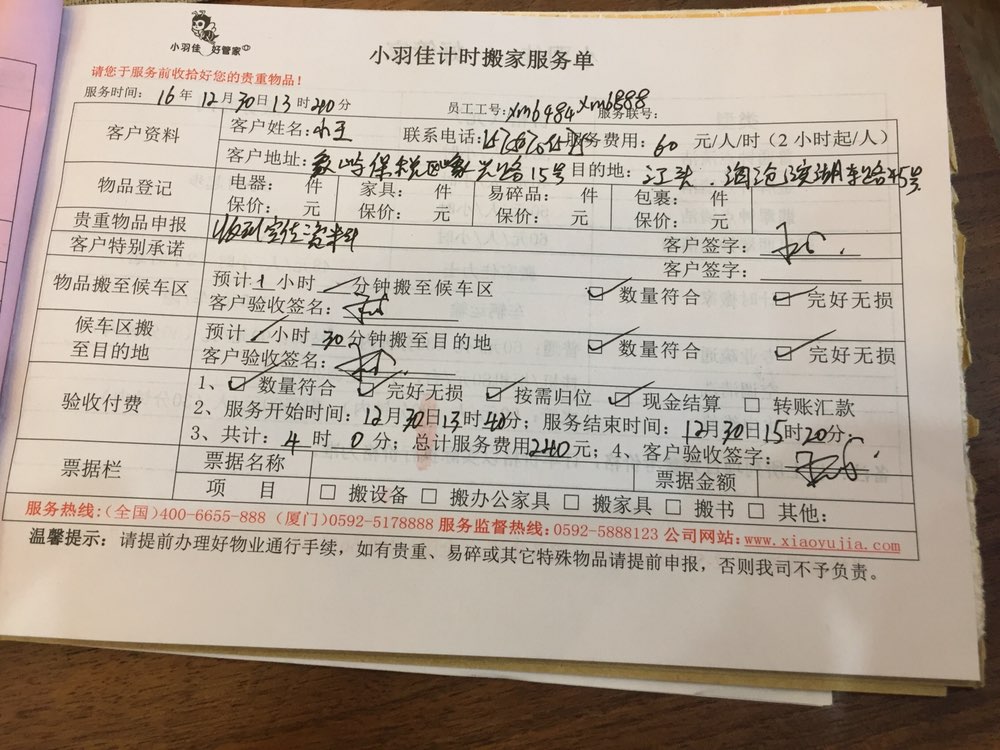 小羽佳 好管家
小羽佳计时搬家服务单
请您于服务前收拾好您的贵重物品！
服务时间：16年12月30日13时40分 员工工号：xm6484 xm6888 服务联号：
客户资料 客户姓名：小王 联系电话： 服务费用：60元/人/时（2小时起/人）
客户地址：象屿保税区象兴路15号 目的地：江头
物品登记 电器： 件 家具： 件 易碎品： 件 包裹： 件
保价： 元 保价： 元 保价： 元 保价： 元
贵重物品申报 客户签字：
客户特别承诺 客户签字：
物品搬至候车区 预计1小时 分钟搬至候车区 数量符合 完好无损
客户验收签名：
候车区搬至目的地 预计 小时30分钟搬至目的地 数量符合 完好无损
客户验收签名：
验收付费 1、数量符合 完好无损 按需归位 现金结算 转账汇款
2、服务开始时间：12月30日13时40分；服务结束时间：12月30日15时20分；
3、共计：4时0分；总计服务费用240元；4、客户验收签字：
票据栏 票据名称 票据金额
项 目 搬设备 搬办公家具 搬家具 搬书 其他：
服务热线：(全国)400-6655-888 (厦门)0592-5178888 服务监督热线：0592-5888123 公司网站：www.xiaoyujia.com
温馨提示：请提前办理好物业通行手续，如有贵重、易碎或其它特殊物品请提前申报，否则我司不予负责。